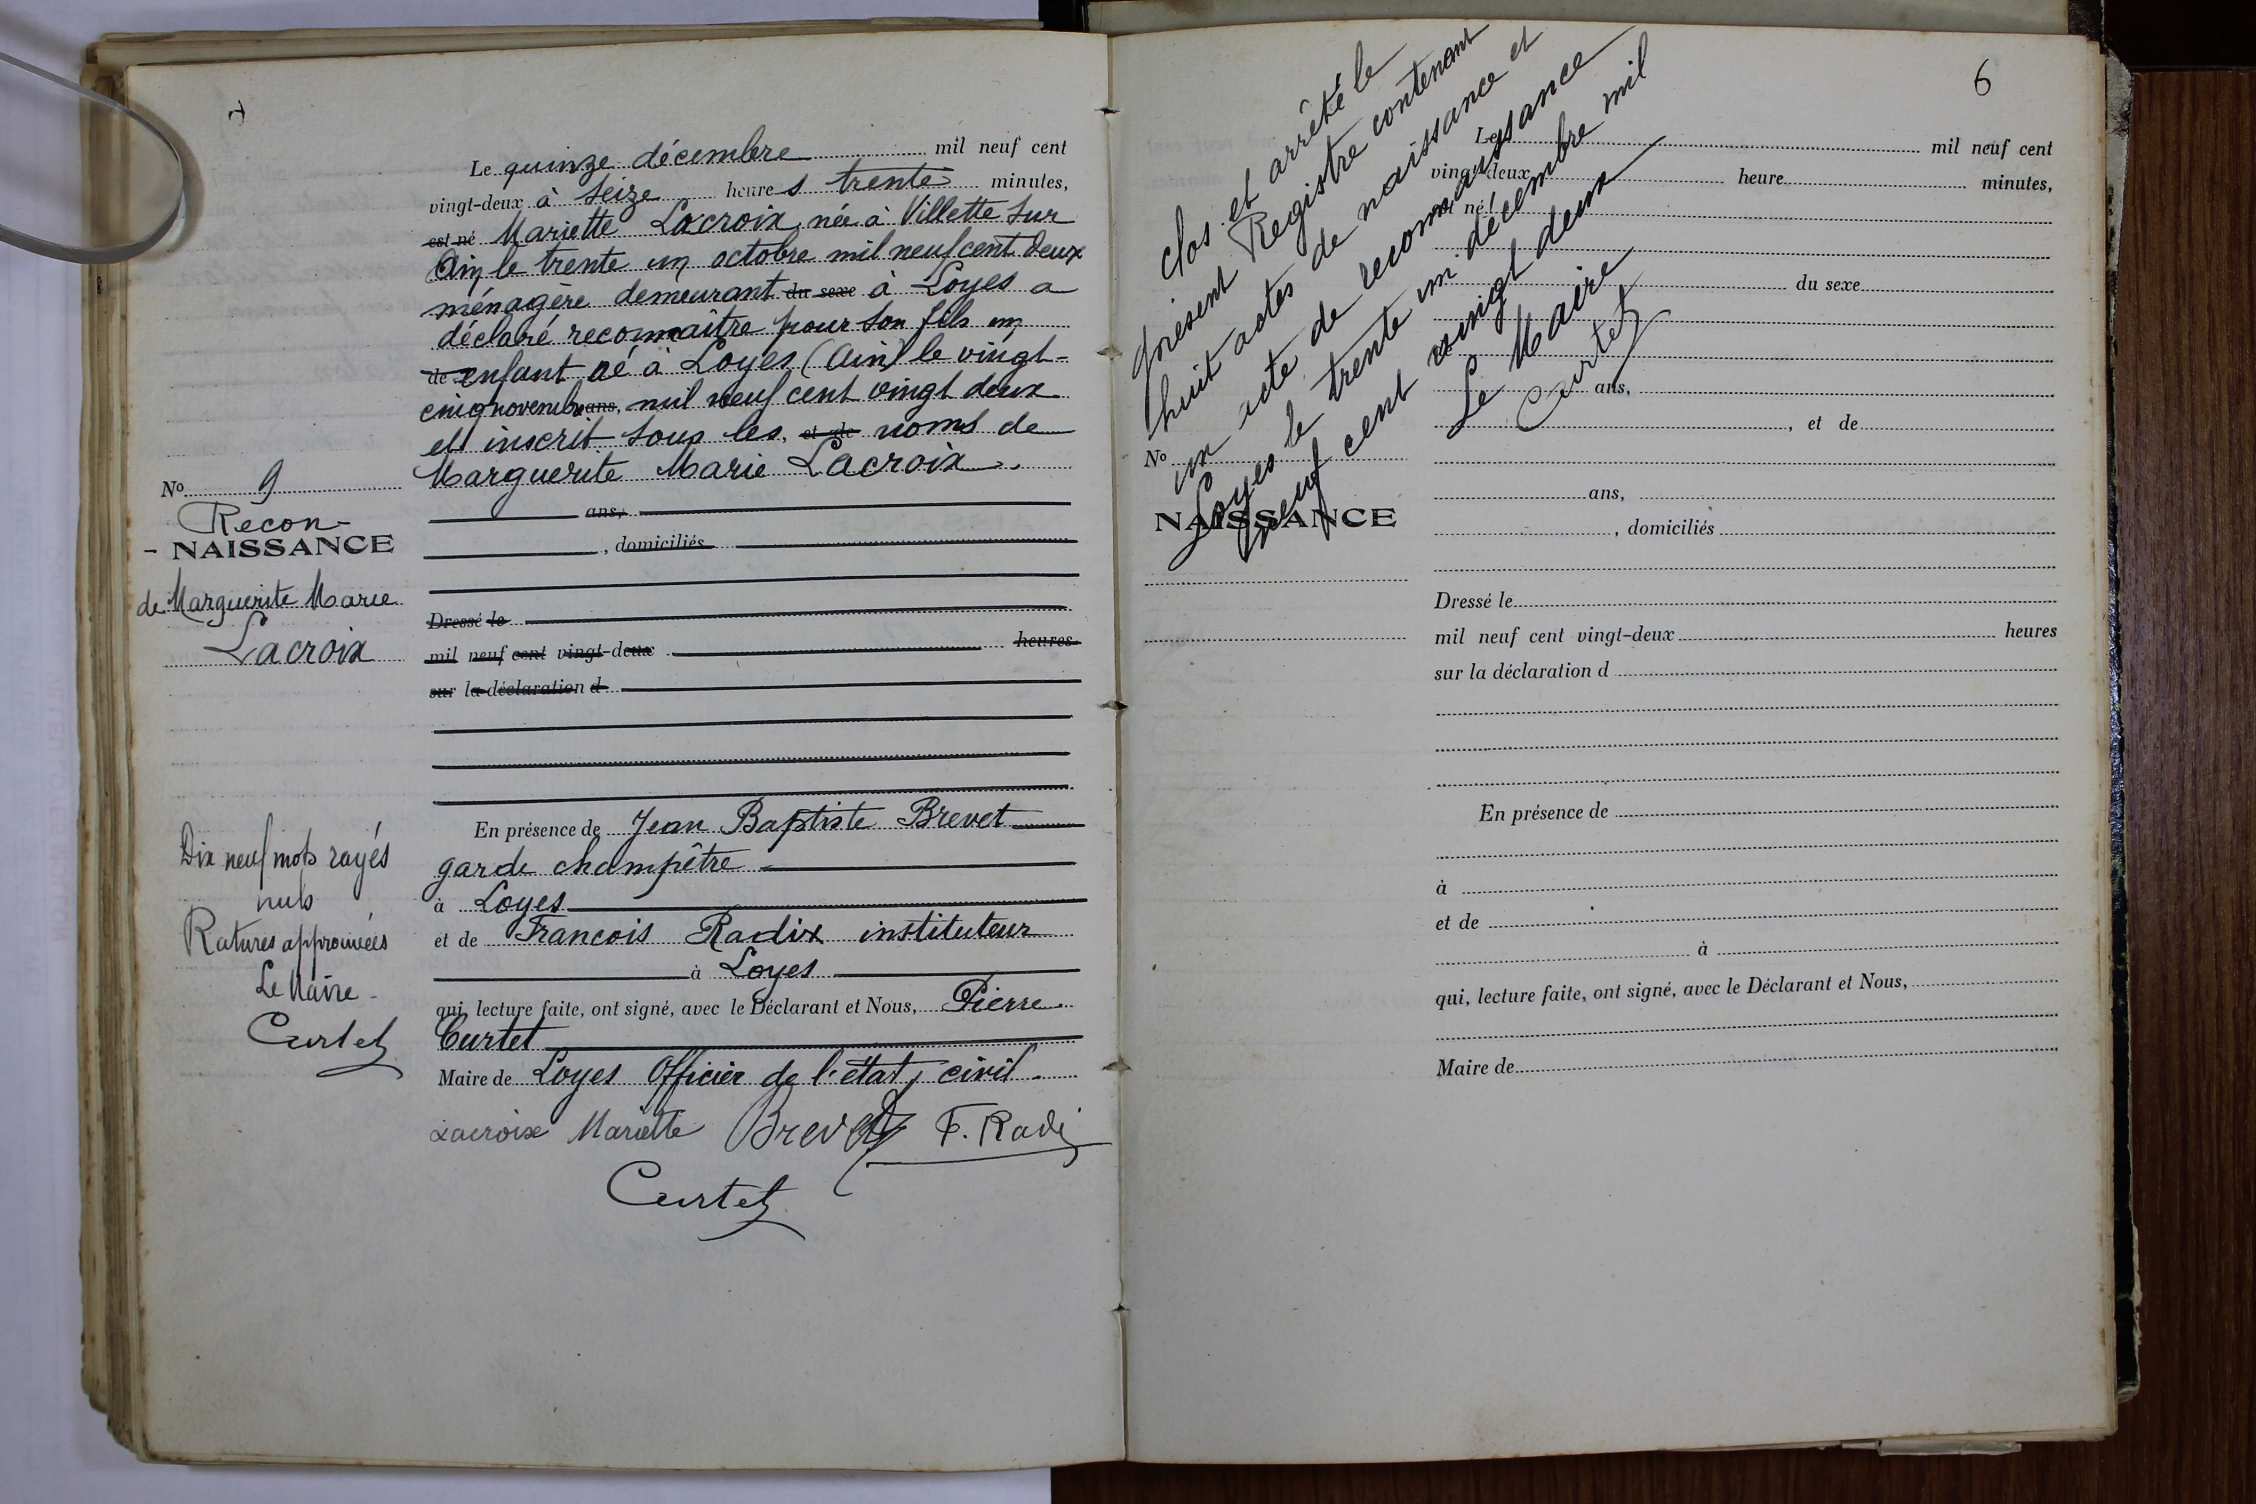 Le quinze décembre mil neuf cent
vingt-deux à seize heures trente minutes,
est né Mariette Lacroix, née à Villette sur
Ain le trente un octobre mil neuf cent deux
ménagère demeurant du sexe à Loyes a
déclaré reconnaître pour son fils un
de enfant né à Loyes (Ain) le vingt-
cinq novembre ans, mil neuf cent vingt deux
et inscrit sous les, et de noms de
Marguerite Marie Lacroix.
ans,
, domiciliés
Dressé le
mil neuf cent vingt-deux heures
sur la déclaration d
En présence de Jean Baptiste Brevet
garde champêtre
à Loyes
et de Francois Radix instituteur
à Loyes
qui, lecture faite, ont signé, avec le Déclarant et Nous, Pierre
Curtet
Maire de Loyes Officier de l'état civil.
Lacroix Mariette Brevet F. Radix
Curtet
No 9
Recon-
- NAISSANCE
de Marguerite Marie
Lacroix
Dix neuf mots rayés
nuls
Ratures approuvées
Le Maire
Curtet
6
clos et arrêté le
présent Registre contenant
huit actes de naissance et
un acte de reconnaissance
Loyes le trente un décembre mil
neuf cent vingt deux
Le Maire
Curtet
Le mil neuf cent
vingt-deux heure minutes,
est né
du sexe
ans,
, et de
No
ans,
NAISSANCE
, domiciliés
Dressé le
mil neuf cent vingt-deux heures
sur la déclaration d
En présence de
à
et de
à
qui, lecture faite, ont signé, avec le Déclarant et Nous,
Maire de